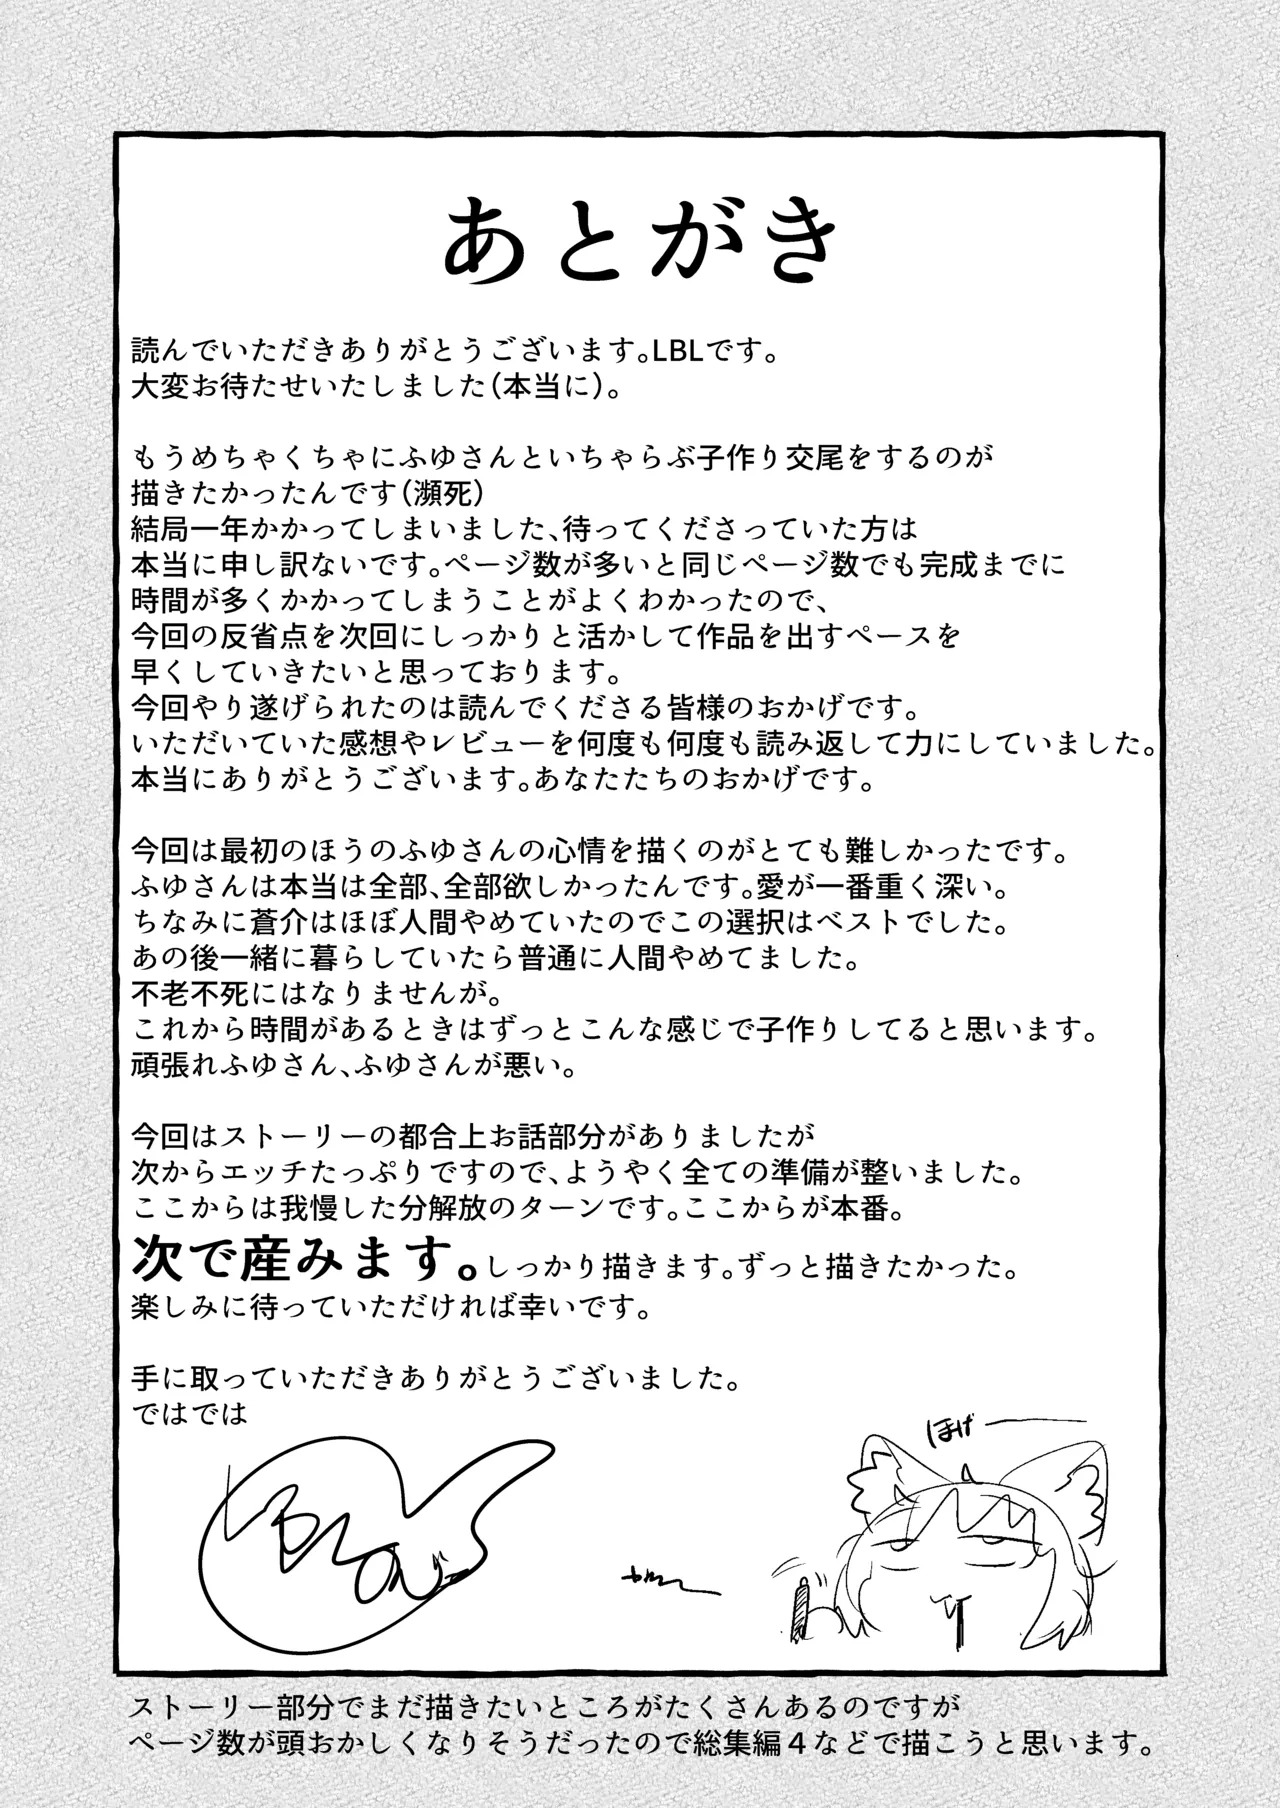 あとがき
読んでいただきありがとうございます。LBLです。
大変お待たせいたしました(本当に)。
もうめちゃくちゃにふゆさんといちゃらぶ子作り交尾をするのが
描きたかったんです(瀕死)
結局一年かかってしまいました、待ってくださっていた方は
本当に申し訳ないです。ページ数が多いと同じページ数でも完成までに
時間が多くかかってしまうことがよくわかったので、
今回の反省点を次回にしっかりと活かして作品を出すペースを
早くしていきたいと思っております。
今回やり遂げられたのは読んでくださる皆様のおかげです。
いただいていた感想やレビューを何度も何度も読み返して力にしていました。
本当にありがとうございます。あなたたちのおかげです。
今回は最初のほうのふゆさんの心情を描くのがとても難しかったです。
ふゆさんは本当は全部、全部欲しかったんです。愛が一番重く深い。
ちなみに蒼介はほぼ人間やめていたのでこの選択はベストでした。
あの後一緒に暮らしていたら普通に人間やめてました。
不老不死にはなりませんが。
これから時間があるときはずっとこんな感じで子作りしてると思います。
頑張れふゆさん、ふゆさんが悪い。
今回はストーリーの都合上お話部分がありましたが
次からエッチたっぷりですので、ようやく全ての準備が整いました。
ここからは我慢した分解放のターンです。ここからが本番。
次で産みます。しっかり描きます。ずっと描きたかった。
楽しみに待っていただければ幸いです。
手に取っていただきありがとうございました。
ではでは
ほげー
LBL
ストーリー部分でまだ描きたいところがたくさんあるのですが
ページ数が頭おかしくなりそうだったので総集編4などで描こうと思います。